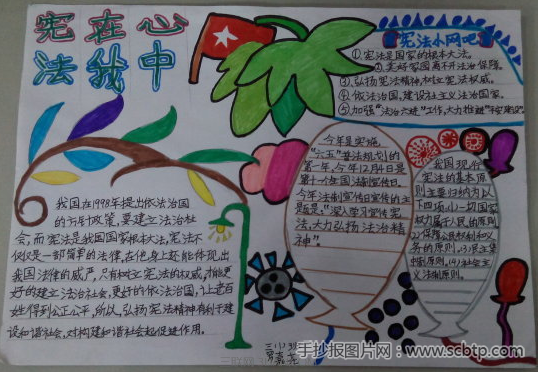 宪在心
法我中
宪法小网吧
①.宪法是国家的根本大法。
②.美好家园离不开法治保障。
③.弘扬宪法精神,树立宪法权威。
④.依法治国,建设社主义法治国家。
⑤加强"法治六进"工作,大力推进"平安建设"
今年是实施
"六五"普法规划的
第一年,今年12月4日是
第十一个全国法制宣传日。
今年法制宣传日宣传的主
题是:"深入学习宣传宪
法,大力弘扬法治精
神"
我国现行
宪法的基本原
则主要归纳为以
下四项:(1)一切国家
权力属于人民的原则
(2)保障公民权利和义
务的原则。(3)民主集
中制原则。(4)社会主
义法制原则。
我国在1998年提出依法治国
的方针政策,要建立法治社
会,而宪法是我国国家根本大法,宪法不
仅仅是一部简单的法律,在他身上还能体现出
我国法律的威严,只有树立宪法的权威,才能更
好的建立法治社会,更好的依法治国,让老百
姓得到公正公平,所以,弘扬宪法精神有利于建
设和谐社会,对构建和谐社会起促进作用。
手抄报图片网：www.scbtp.com